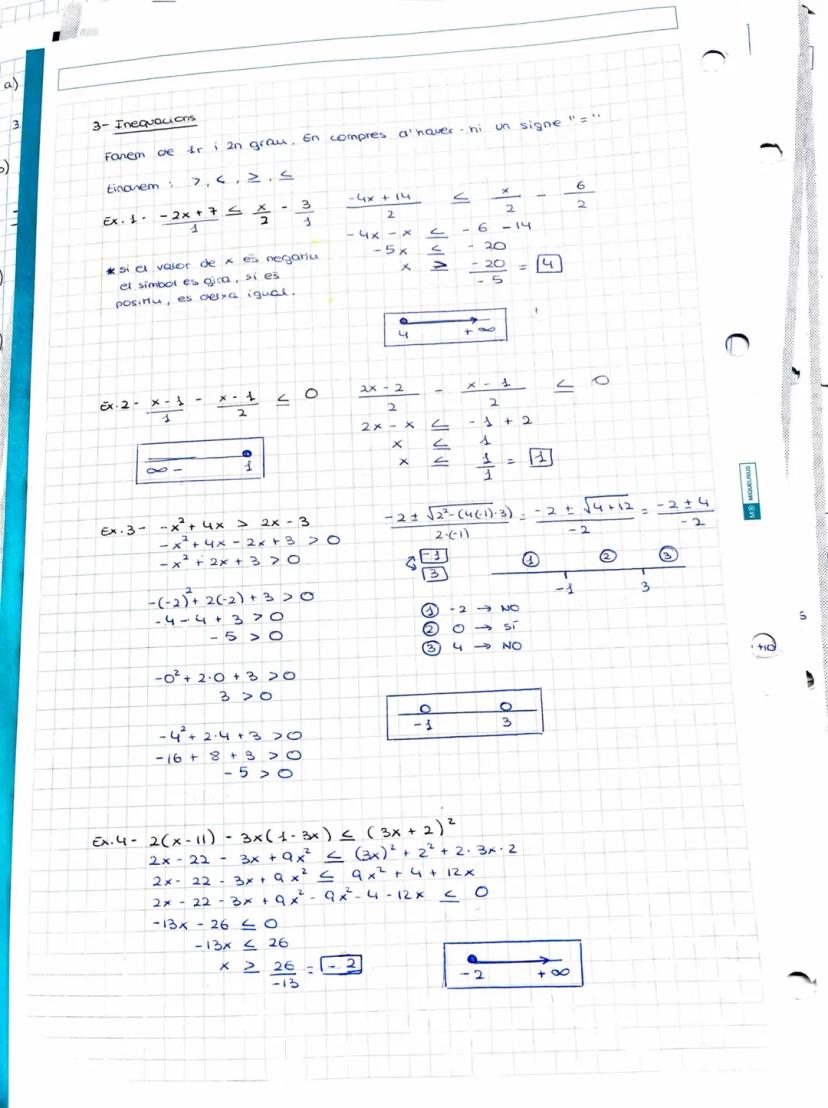 a)
3
3- Inequacions
Farem de 1r i 2n grau. En compres d'haver-hi un signe "="
tindrem: >, <, ≥, ≤
Ex. 1. (-2x + 7)/1 ≤ x/2 - 3/1
(-4x + 14)/2 ≤ x/2 - 6/2
-4x - x ≤ -6 - 14
-5x ≤ -20
x ≥ -20/-5 = 4
* si el valor de x és negatiu
el símbol es gira, si és
positiu, es deixa igual.
4 +∞
Ex. 2 - (x - 1)/1 - (x - 1)/2 ≤ 0
(2x - 2)/2 - (x - 1)/2 ≤ 0
2x - x ≤ -1 + 2
x ≤ 1
x ≤ 1/1 = 1
∞ - 1
Ex. 3 - -x² + 4x > 2x - 3
-x² + 4x - 2x + 3 > 0
-x² + 2x + 3 > 0
(-2 ± √(2² - (4(-1)·3)))/(2·(-1)) = (-2 ± √(4 + 12))/-2 = (-2 ± 4)/-2
-1
3
① ② ③
-1 3
-(-2)² + 2(-2) + 3 > 0
-4 - 4 + 3 > 0
-5 > 0
① -2 → NO
② 0 → SÍ
③ 4 → NO
-0² + 2·0 + 3 > 0
3 > 0
-1 3
-4² + 2·4 + 3 > 0
-16 + 8 + 3 > 0
-5 > 0
Ex. 4 - 2(x - 11) - 3x(1 - 3x) ≤ (3x + 2)²
2x - 22 - 3x + 9x² ≤ (3x)² + 2² + 2·3x·2
2x - 22 - 3x + 9x² ≤ 9x² + 4 + 12x
2x - 22 - 3x + 9x² - 9x² - 4 - 12x ≤ 0
-13x - 26 ≤ 0
-13x ≤ 26
x ≥ 26/-13 = -2
-2 +∞
MIQUELRIUS
+10